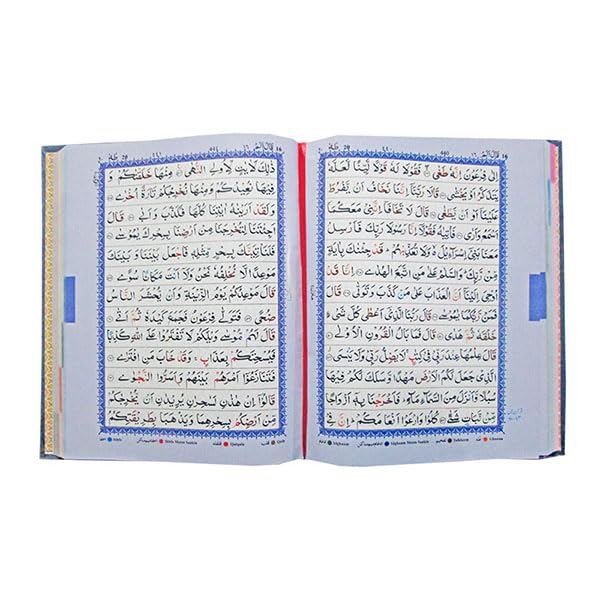 قال الم ١٦ 440 طٰهٰ 20
اِلٰى فِرْعَوْنَ اِنَّهٗ طَغٰى فَقُوْلَا لَهٗ قَوْلًا لَّيِّنًا لَّعَلَّهٗ
يَتَذَكَّرُ اَوْ يَخْشٰى قَالَا رَبَّنَاۤ اِنَّنَا نَخَافُ اَنْ يَّفْرُطَ
عَلَيْنَاۤ اَوْ اَنْ يَّطْغٰى قَالَ لَا تَخَافَاۤ اِنَّنِيْ مَعَكُمَاۤ
اَسْمَعُ وَاَرٰى فَاْتِيٰهُ فَقُوْلَاۤ اِنَّا رَسُوْلَا رَبِّكَ فَاَرْسِلْ
مَعَنَا بَنِيْۤ اِسْرَآءِيْلَ وَلَا تُعَذِّبْهُمْ قَدْ جِئْنٰكَ بِاٰيَةٍ
مِّنْ رَّبِّكَ وَالسَّلٰمُ عَلٰى مَنِ اتَّبَعَ الْهُدٰى اِنَّا قَدْ
اُوْحِيَ اِلَيْنَاۤ اَنَّ الْعَذَابَ عَلٰى مَنْ كَذَّبَ وَتَوَلّٰى قَالَ
فَمَنْ رَّبُّكُمَا يٰمُوْسٰى قَالَ رَبُّنَا الَّذِيْۤ اَعْطٰى كُلَّ شَيْءٍ
خَلْقَهٗ ثُمَّ هَدٰى قَالَ فَمَا بَالُ الْقُرُوْنِ الْاُوْلٰى
قَالَ عِلْمُهَا عِنْدَ رَبِّيْ فِيْ كِتٰبٍ لَا يَضِلُّ رَبِّيْ وَلَا يَنْسَى
الَّذِيْ جَعَلَ لَكُمُ الْاَرْضَ مَهْدًا وَّسَلَكَ لَكُمْ فِيْهَا
سُبُلًا وَّاَنْزَلَ مِنَ السَّمَآءِ مَآءً فَاَخْرَجْنَا بِهٖۤ اَزْوَاجًا
مِّنْ نَّبَاتٍ شَتّٰى كُلُوْا وَارْعَوْا اَنْعَامَكُمْ اِنَّ فِيْ
16 441 طٰهٰ 20
ذٰلِكَ لَاٰيٰتٍ لِّاُولِي النُّهٰى مِنْهَا خَلَقْنٰكُمْ وَ
فِيْهَا نُعِيْدُكُمْ وَمِنْهَا نُخْرِجُكُمْ تَارَةً اُخْرٰى
وَلَقَدْ اَرَيْنٰهُ اٰيٰتِنَا كُلَّهَا فَكَذَّبَ وَاَبٰى قَالَ
اَجِئْتَنَا لِتُخْرِجَنَا مِنْ اَرْضِنَا بِسِحْرِكَ يٰمُوْسٰى
فَلَنَاْتِيَنَّكَ بِسِحْرٍ مِّثْلِهٖ فَاجْعَلْ بَيْنَنَا وَبَيْنَكَ
مَوْعِدًا لَّا نُخْلِفُهٗ نَحْنُ وَلَاۤ اَنْتَ مَكَانًا سُوًى
قَالَ مَوْعِدُكُمْ يَوْمُ الزِّيْنَةِ وَاَنْ يُّحْشَرَ النَّاسُ
ضُحًى فَتَوَلّٰى فِرْعَوْنُ فَجَمَعَ كَيْدَهٗ ثُمَّ اَتٰى
قَالَ لَهُمْ مُّوْسٰى وَيْلَكُمْ لَا تَفْتَرُوْا عَلَى اللّٰهِ كَذِبًا
فَيُسْحِتَكُمْ بِعَذَابٍ وَقَدْ خَابَ مَنِ افْتَرٰى
فَتَنَازَعُوْۤا اَمْرَهُمْ بَيْنَهُمْ وَاَسَرُّوا النَّجْوٰى
قَالُوْۤا اِنْ هٰذٰنِ لَسٰحِرٰنِ يُرِيْدٰنِ اَنْ يُّخْرِجٰكُمْ
مِّنْ اَرْضِكُمْ بِسِحْرِهِمَا وَيَذْهَبَا بِطَرِيْقَتِكُمُ